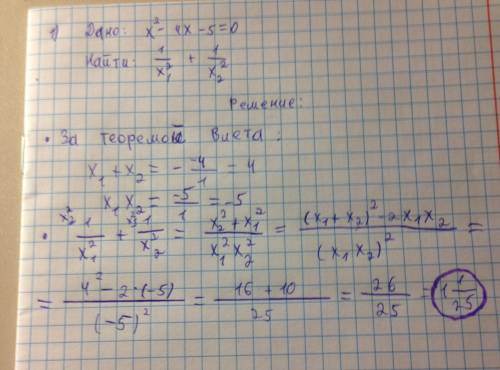 1) Дано: x² - 4x - 5 = 0
Найти: 1/x₁² + 1/x₂²
Решение:
• За теоремой Виета:
x₁ + x₂ = - -4/1 = 4
x₁ x₂ = -5/1 = -5
• x₂² 1/x₁² + x₁² 1/x₂² = (x₂² + x₁²)/(x₁² x₂²) = ((x₁ + x₂)² - 2x₁x₂)/(x₁x₂)² =
= (4² - 2·(-5))/(-5)² = (16 + 10)/25 = 26/25 = 1 1/25